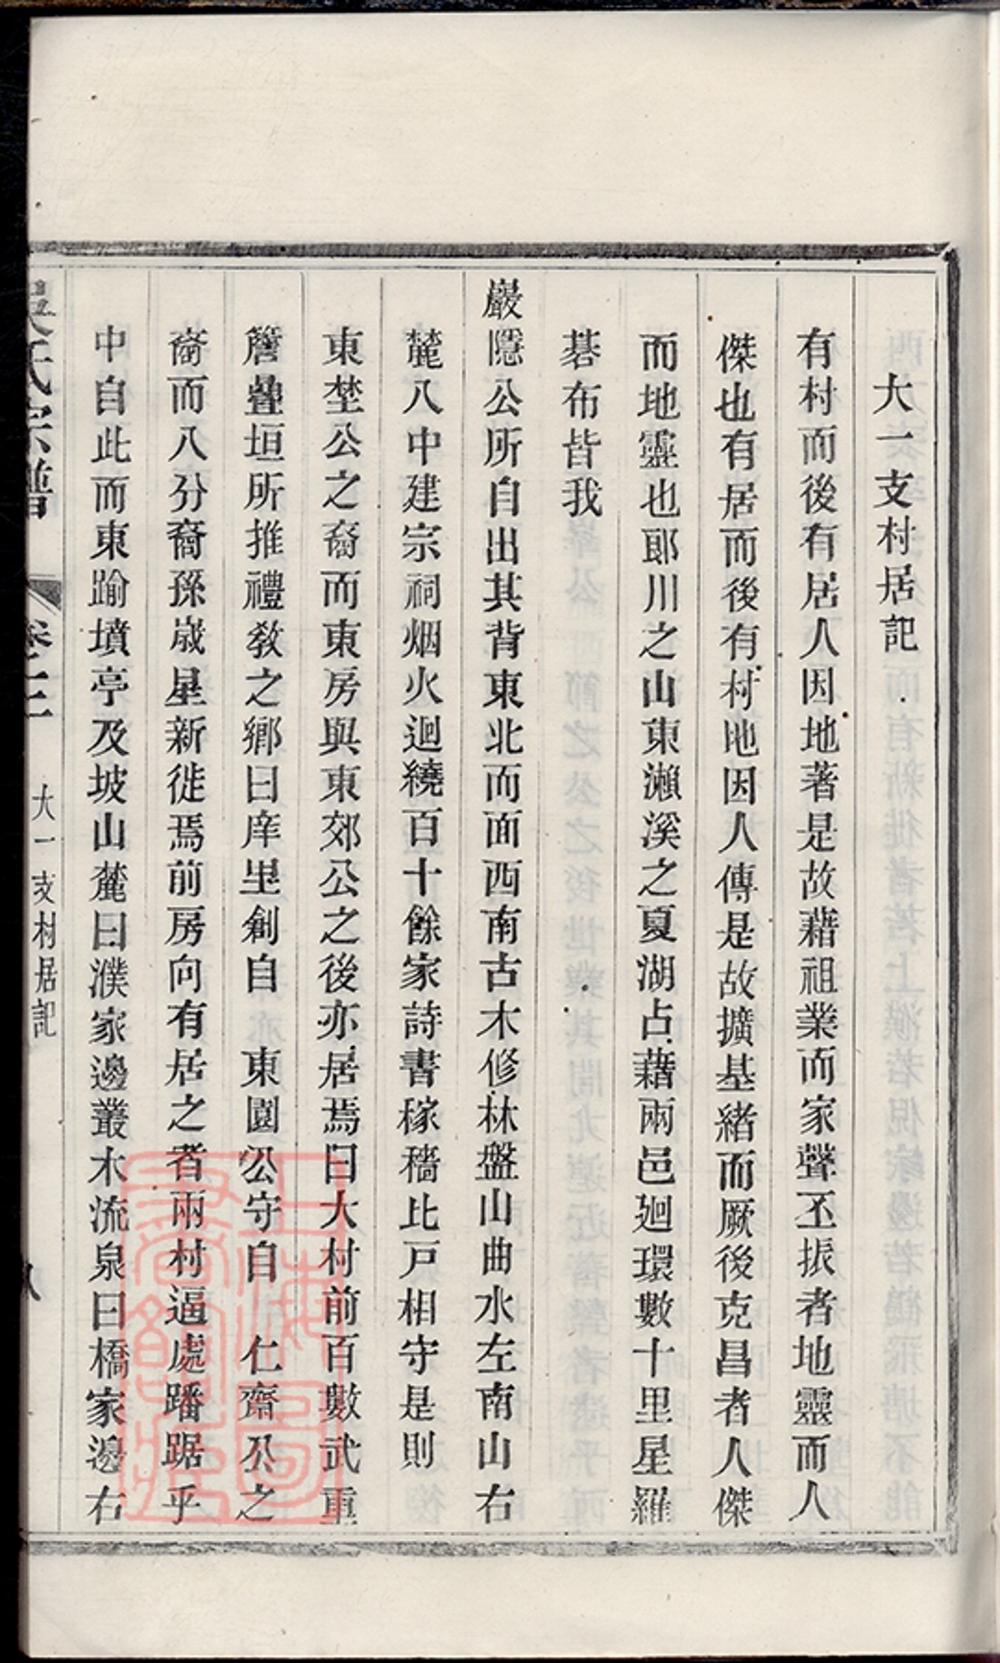 大一支村居記
有村而後有居人因地著是故藉祖業而家聲丕振者地靈而人
傑也有居而後有村地因人傳是故擴基緒而厥後克昌者人傑
而地靈也郎川之山東瀨溪之夏湖占藉兩邑廻環數十里星羅
碁布皆我
巖隱公所自出其背東北而面西南古木修林盤山曲水左南山右
麓八中建宗祠烟火迴繞百十餘家詩書稼穡比戸相守是則
東埜公之裔而東房與東郊公之後亦居焉曰大村前百數武重
簷疊垣所推禮教之鄉曰庠里創自 東園公守自 仁齋公之
裔而八分裔孫嵗星新徙焉前房向有居之者兩村逼處蹯踞乎
中自此而東踰墳亭及坡山麓曰濮家邊叢木流泉曰橋家邊右
吳氏宗譜 卷二 大一支村居記 八